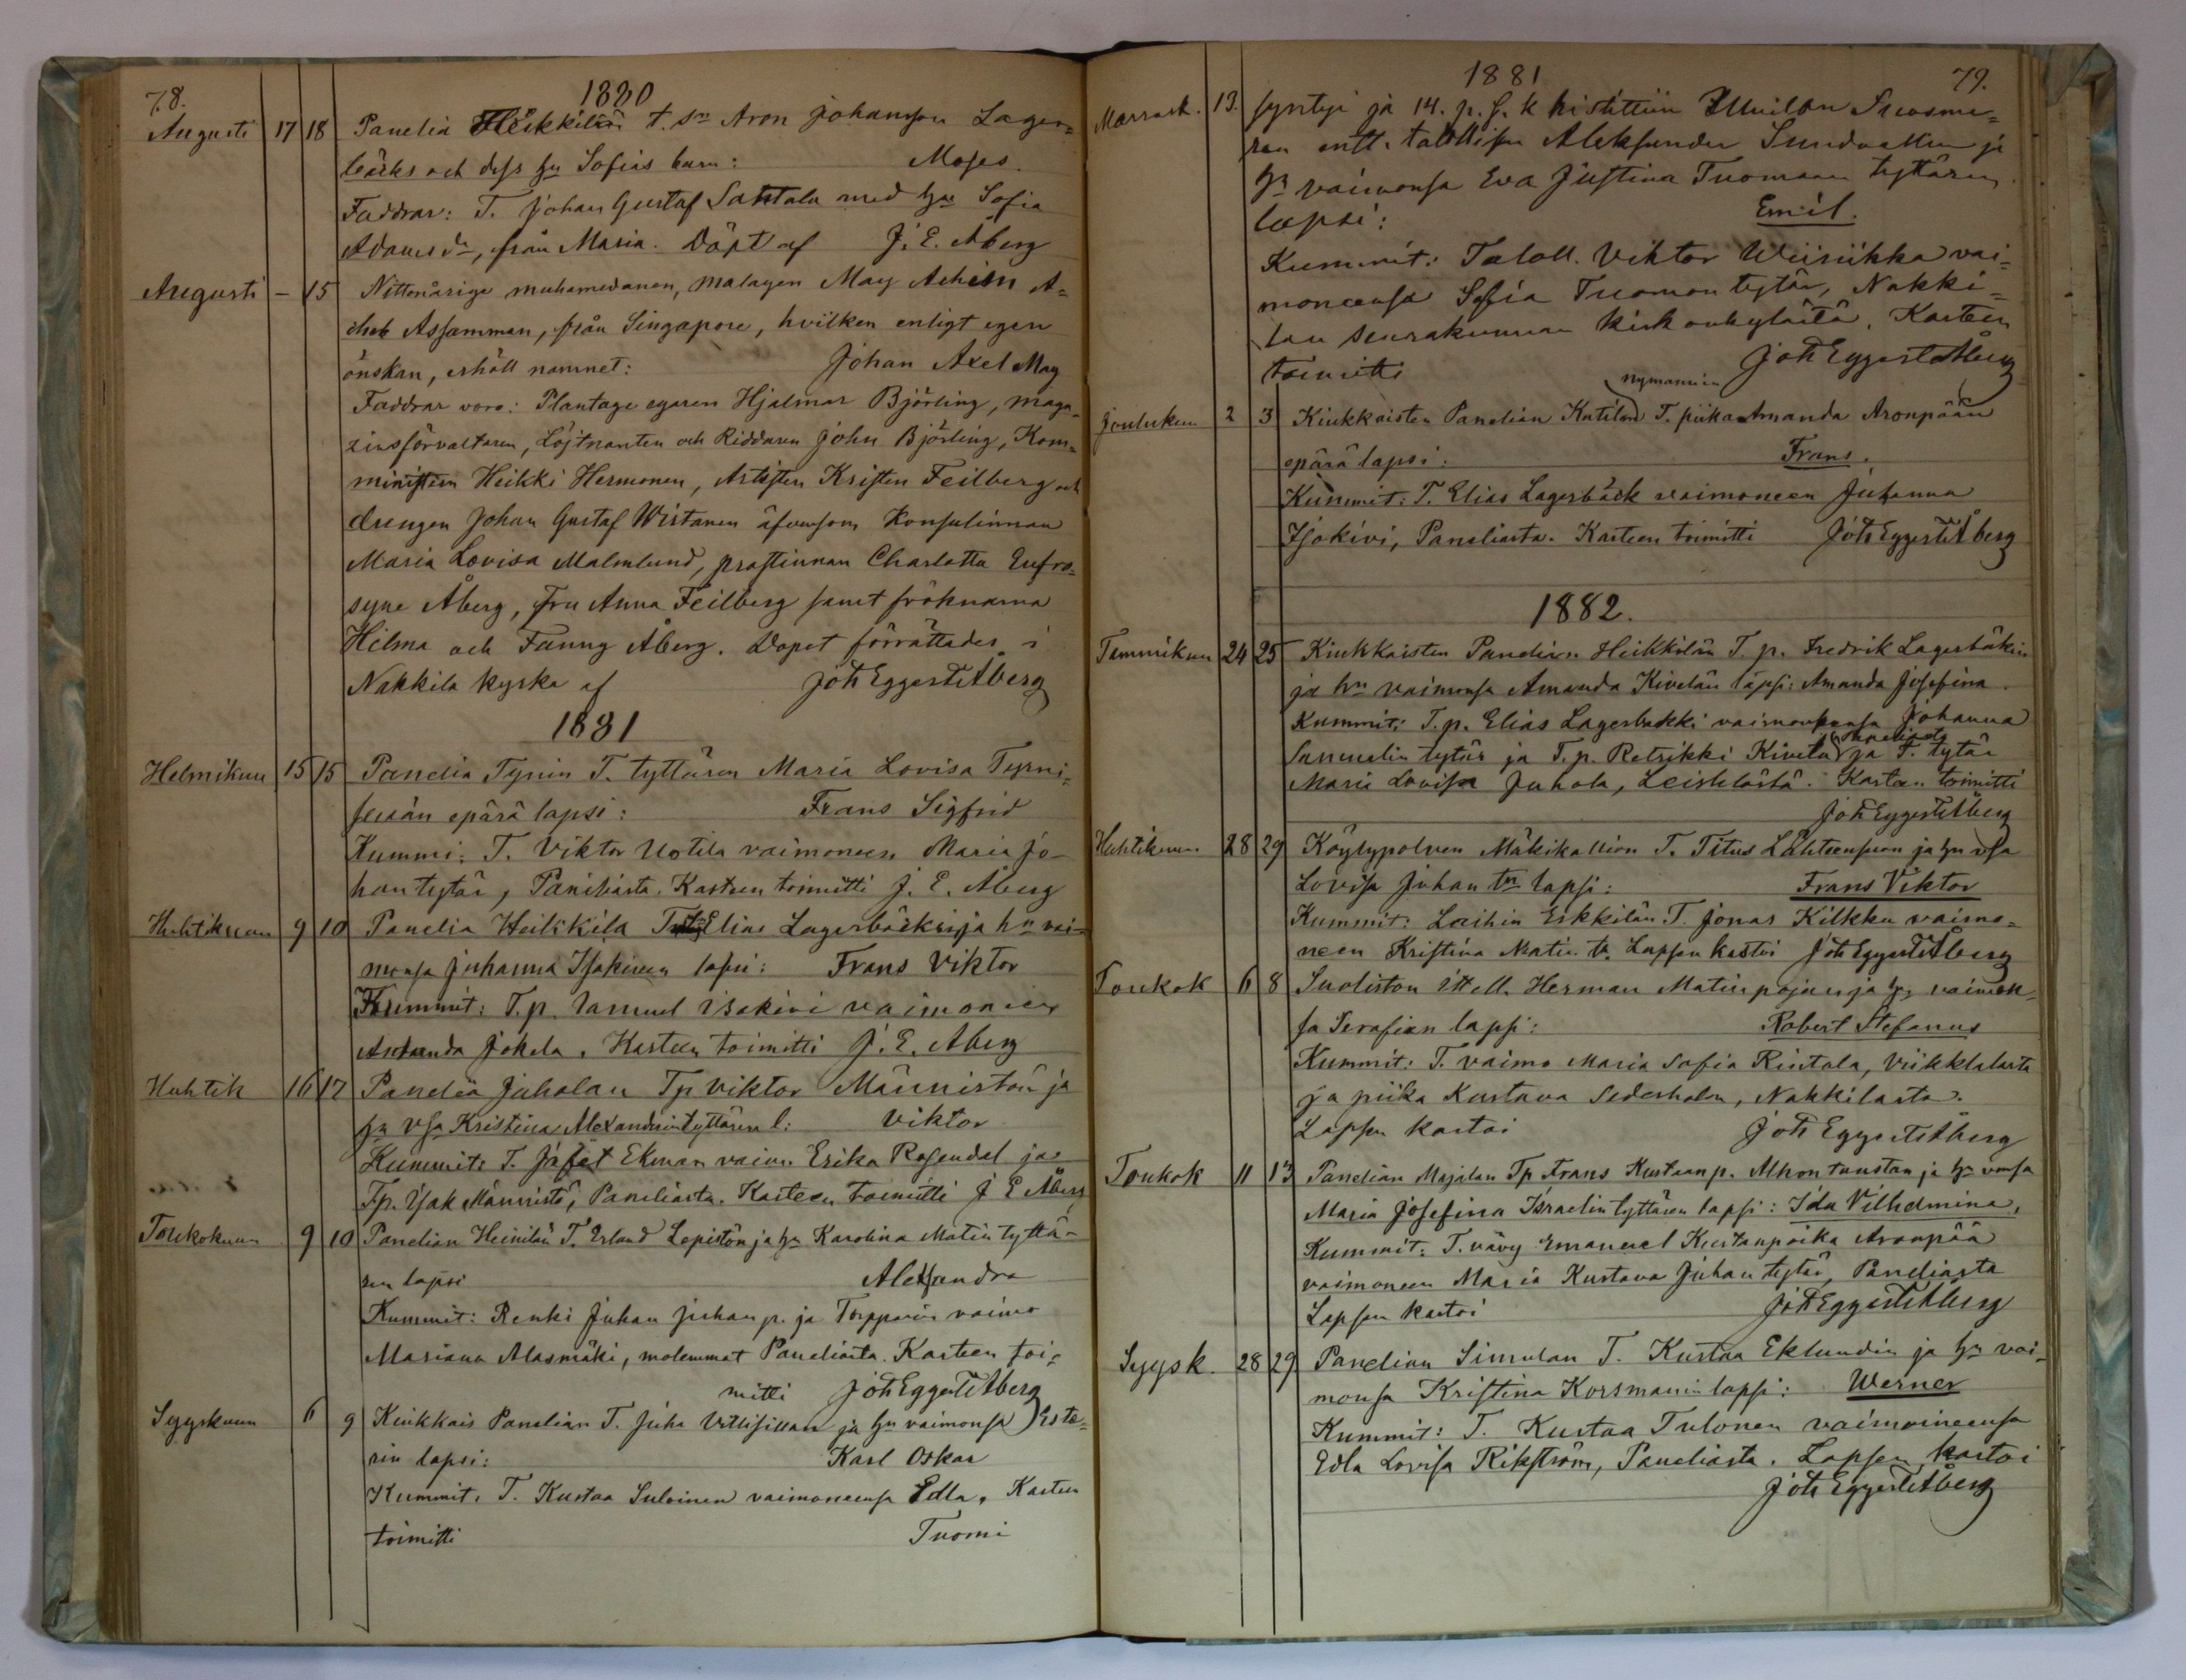 78.
1880
Augusti 17 18 Panelia Heikkilän t. sn Aron Johansson Lager=
bäcks och dess hu Sofias barn: Moses.
Faddrar: T. Johan Gustaf Santala med hu Sofia
Adamsdr, från Masia. Döpt af J. E. Åberg
Augusti – 15 Nittonårige muhamedanen, malayen May Achim A=
cheb Assamman, från Singapore, hvilken enligt egen
önskan, erhöll namnet: Johan Axel May
Faddrar voro: Plantage egaren Hjalmar Björling, maga=
zinsförvaltaren, Löjtnanten och Riddaren John Björling, Kom=
ministern Heikki Hermonen, Artisten Kristen Feilberg och
drengen Johan Gustaf Wistanen äfvensom Konsulinnan
Maria Lovisa Malmlund, prostinnan Charlotta Eufro=
syne Åberg, Fru Anna Feilberg samt fröknarna
Hilma och Fanny Åberg. Dopet förrättades i
Nakkila kyrka af Joh Eggert Åberg
1881
Helmikuu 15 15 Panelia Tynin T. tyttären Maria Lovisa Tyrni=
epärä lapsi: Frans Sigfrid
Kummi: T. Viktor Uotila vaimoneen Maria Jo-
han tytär, Paneliasta. Kasteen toimitti J. E. Åberg
Huhtikuun 9 10 Panelia Heikkilä Elias Lagerbäckin ja hn vai=
monsa Juhanna Isokiven lapsi: Frans Viktor
Kummit: T.p. Samuel Isokivi vaimoneen
Amanda Jokela. Kasteen toimitti J. E. Åberg
Huhtik 16 17 Panelia Juholan Tp Viktor Männistön ja
hn vsa Kristina Alexanderintyttären l: Viktor
Kummit: T. Jafet Ekman vaimo Erika Rosendal ja
Tp. Isak Männistö, Paneliasta. Kasteen toimitti J E Åberg
Toukokuun 9 10 Panelian Heinilän T. Erland Lepistön ja hn Karolina Matin tyttä-
ren lapsi Aleksandra
Kummit: Renki Juhan Juhan p. ja Torpparin vaimo
Mariana Alasmäki, molemmat Paneliasta. Kasteen toi=
mitti Joh Eggert Åberg
Syyskuun 6 9 Kiukkais Panelian T. Juha ja hn vaimonsa Este=
rin lapsi: Karl Oskar
Kummit. T. Kustaa Suloinen vaimoneensa Edla. Kasteen
toimitti Tuomi
1881
79.
Marrask. 13. syntyi ja 14. p. s. k. kristittiin
entt. talollisen Aleksander Sundvallin ja
hn vaimonsa Eva Justina Tuomaan tyttären
lapsi: Emil.
Kummit: Taloll. Viktor Wiisiikka vai=
moneensa Sofia Tuomon tytär, Nakki=
lan seurakunnan kirkonkylästä. Kasteen
toimitti Joh Eggert Åberg
Joulukuu 2 3 Kiukkaisten Panelian Katilan Nymannin T. piika Amanda Aronpään
epärä lapsi: Frans.
Kummit: T. Elias Lagerbäck vaimoneen Juhanna
Isokivi, Paneliasta. Kasteen toimitti Joh Eggert Åberg
1882.
Tammikuu 24 25 Kiukkaisten Panelian Heikkilän T. p. Fredrik Lagerbäkin
ja hn vaimonsa Amanda Kivelän lapsi: Amanda Josefina.
Kummit: T.p. Elias Lagerbäkki vaimoneensa Johanna
Samuelin tytär ja T.p. Retrikki Kivelä Paneliasta ja T. tytär
Maria Lovisa Juhola, Leistilästä. Kasteen toimitti
Joh Eggert Åberg
Huhtikuun 28 29 Köylypolven Mäkikallion T. Titus Lähteenfuon ja hn vsa
Lovisa Juhan trn lapsi: Frans Viktor
Kummit: Laihin Eskkilän T. Jonas Kilkku vaimo=
neen Kristina Matin tr. Lapsen kastoi Joh Eggert Åberg
Toukok 6 8 Suoliston itsell. Herman Matinpojan ja hn vaimon=
sa Serafian lapsi: Robert Stefanus
Kummit: T. vaimo Maria Sofia Rintala, Viikkalasta
ja piika Kustava Sederholm, Nakkilasta.
Lapsen kastoi Joh Eggert Åberg
Toukok 11 13 Panelian Majalan Tp Frans Kustaan p. Alhontaustan ja hn vmsa
Maria Josefina Israelin tyttären lapsi: Ida Vilhelmina.
Kummit: T. vävy Emanuel Kustanpoika Aronpää
vaimoneen Maria Kustava Juhan tytär, Paneliasta
Lapsen kastoi Joh Eggert Åberg
Syysk. 28 29 Panelian Simulan T. Kustaa Eklundin ja hn vai=
monsa Kristina Korsmanin lapsi: Werner
Kummit: T. Kustaa Tulonen vaimoineensa
Edla Lovisa Rikström, Paneliasta. Lapsen kastoi
Joh Eggert Åberg